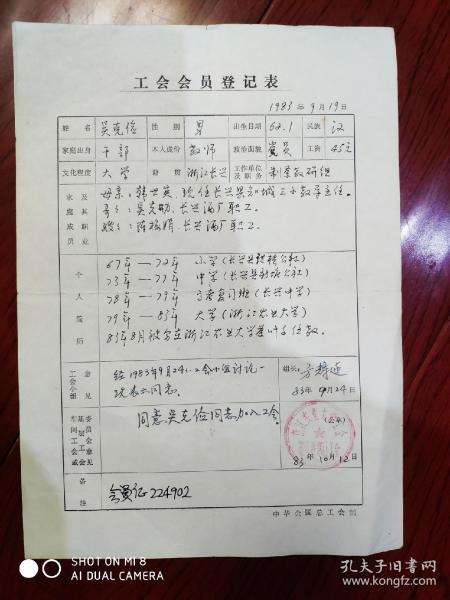 工会会员登记表
1983年9月19日
姓名 吴克俭 性别 男 出生日期 62.1 民族 汉
家庭出身 干部 本人成份 教师 政治面貌 党员 工资 45元
文化程度 大学 籍贯 浙江长兴 工作单位及职务 制茶教研组
家庭成员及其职业
母亲:韩世英、现任长兴县知城三小教导主任。
哥:吴克勋、长兴酒厂职工。
嫂:陈、长兴酒厂职工。
个人简历
67年——72年 小学(长兴县公社)
73年——77年 中学(长兴县新塘公社)
78年——79年 高考复习班(长兴中学)
79年——83年 大学(浙江农业大学)
83年8月被分在浙江农业大学茶叶系任教。
工会小组意见
经1983年9月24日工会小组讨论一
致表示同意。
组长:方
83年9月24日
车间工会或基层工会委员会意见
同意吴克俭同志加入工会。
(公章)
83年10月12日
备注
会员证224902
中华全国总工会制
SHOT ON MI 8
AI DUAL CAMERA
孔夫子旧书网
www.kongfz.com